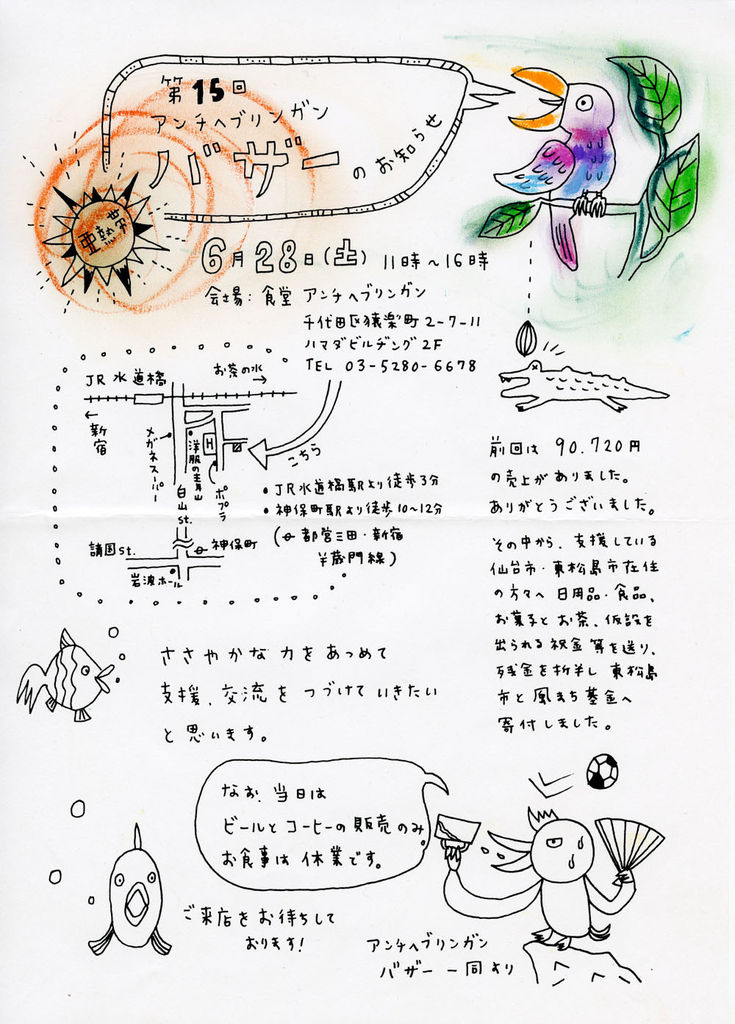 第15回
アンチヘブリンガン
バザーのお知らせ
亜熱帯
6月28日(土) 11時〜16時
会場:食堂 アンチヘブリンガン
千代田区猿楽町2-7-11
ハマダビルヂング2F
TEL 03-5280-6678
JR水道橋
お茶の水
→
←
新宿
メガネスーパー
洋服の青山
H
ポプラ
こちら
白山st.
靖国st.
神保町
岩波ホール
•JR水道橋駅より徒歩3分
•神保町駅より徒歩10〜12分
(都営三田・新宿
半蔵門線)
前回は 90.720円
の売上がありました。
ありがとうございました。
その中から、支援している
仙台市・東松島市在住
の方々へ 日用品・食品、
お菓子とお茶、仮設を
出られる祝金等を送り、
残金を折半し 東松島
市と風まち基金へ
寄付しました。
ささやかな力をあつめて
支援、交流を つづけていきたい
と思います。
なお、当日は
ビールとコーヒーの販売のみ。
お食事は休業です。
ご来店をお待ちして
おります!
アンチヘブリンガン
バザー一同より